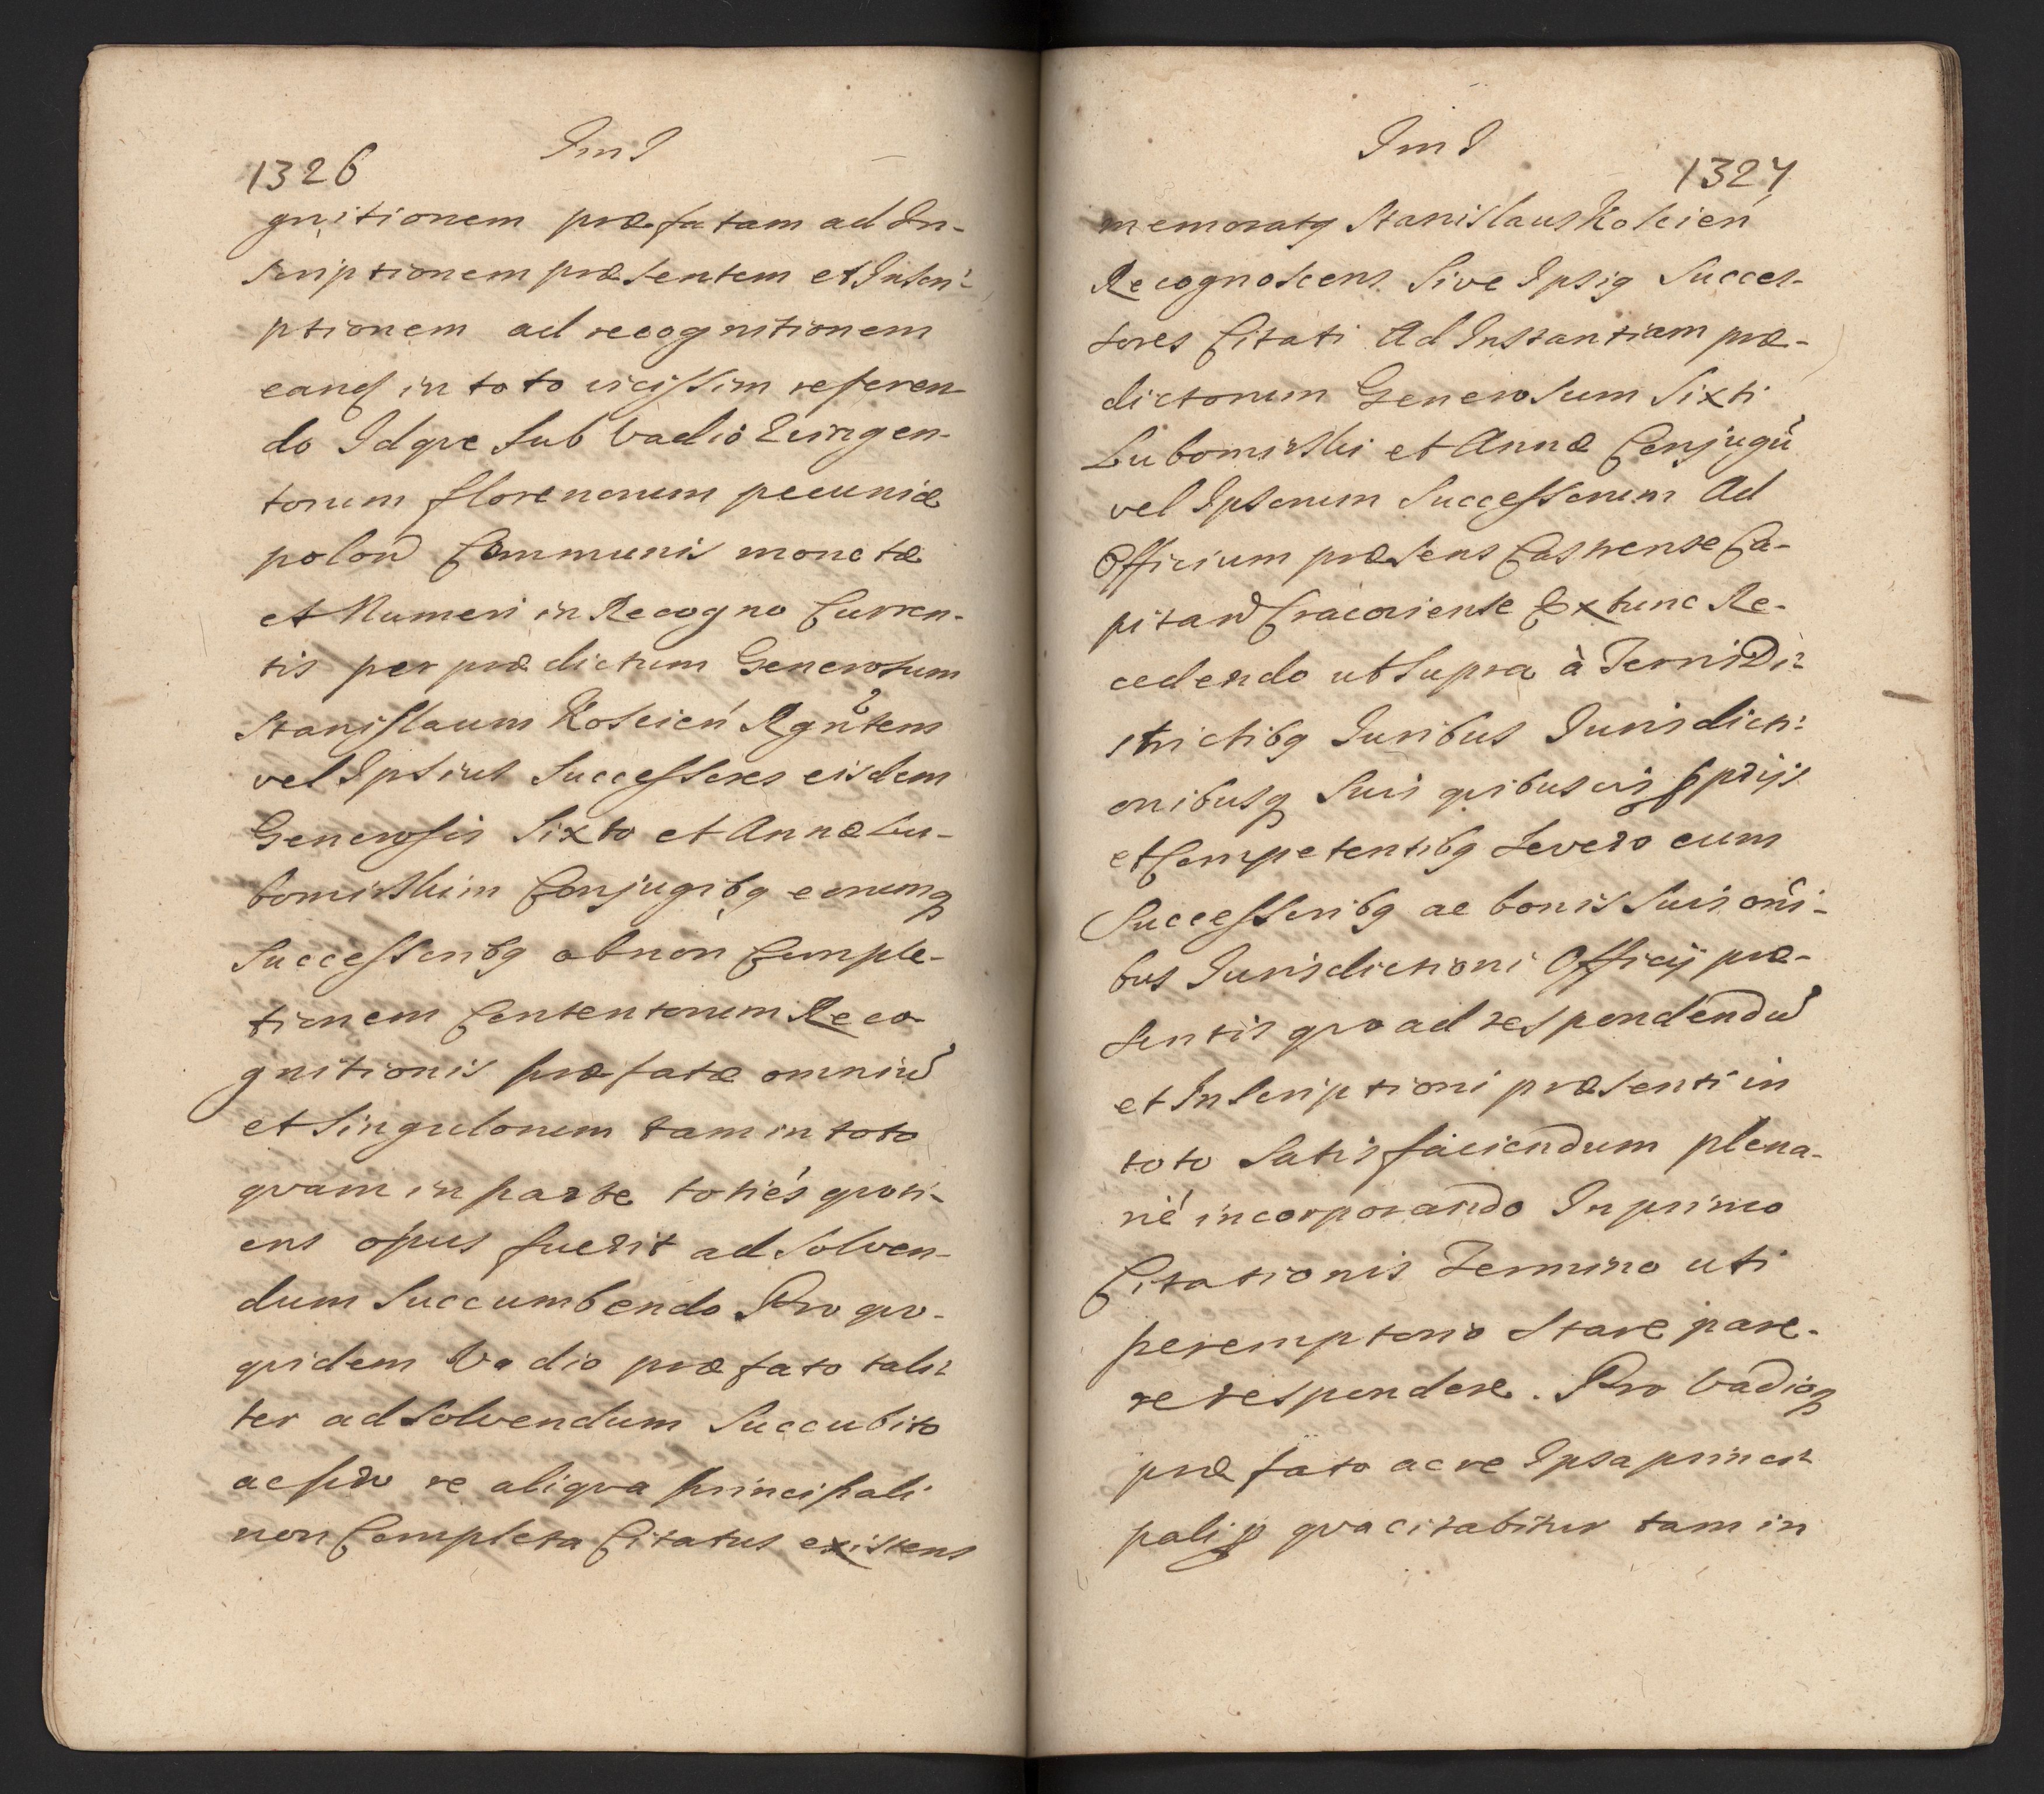 1326
gnitionem præfatam ad In-
scriptionem præsentem et Inscri-
ptionem ad recognitionem
eand in toto vicissim referen-
do Idqve sub Vadio Qvingen-
torum florenorum pecuniæ
polon Communis monetæ
et Numeri in Regno Curren-
tis per prædictum Generosum
Stanislaum Koscień Rgntem
vel Ipsius Successores eisdem
Generosis Sixto et Annæ Lu-
bomirskim Conjugibq eorumq
Successoribq ob non Comple-
tionem Contentorum Reco-
gnitionis præfatæ omniu
et Singulorum tam in toto
qvam in parte totiés qvoti-
ens opus fuerit ad solven-
dum Succumbendo Pro qvo-
qvidem Vadio præfato tali-
ter ad Solvendum Succubito
ac pro re aliqva principali
non Completa Citatus existens
1327
memoratq Stanislaus Koscień
Recognoscens Sive Ipsiq Succes-
sores Citati Ad Instantiam præ-
dictorum Generosum Sixti
Lubomirski et Annæ Conjugu
vel Ipsorum Successorum Ad
Officium præsens Castrense Ca-
pitan Cracoviense Extunc Re-
cedendo ut Supra à Terris Di-
strictibq Iuribus Iurisdicti-
onibusq Suis qvibusvis pprijs
et Competentibq Severo cum
Successoribq ac bonis Suis oni-
bus Iurisdictioni Officij præ-
sentis qvo ad respondendu
et Inscriptioni præsenti in
toto Satisfaciendum plena-
rié incorporando In primo
Citationis Termino uti
peremptorio Stare pare-
re respondere. Pro Vadioq
præfato ac re Ipsa princi-
pali p qva citabitur tam in